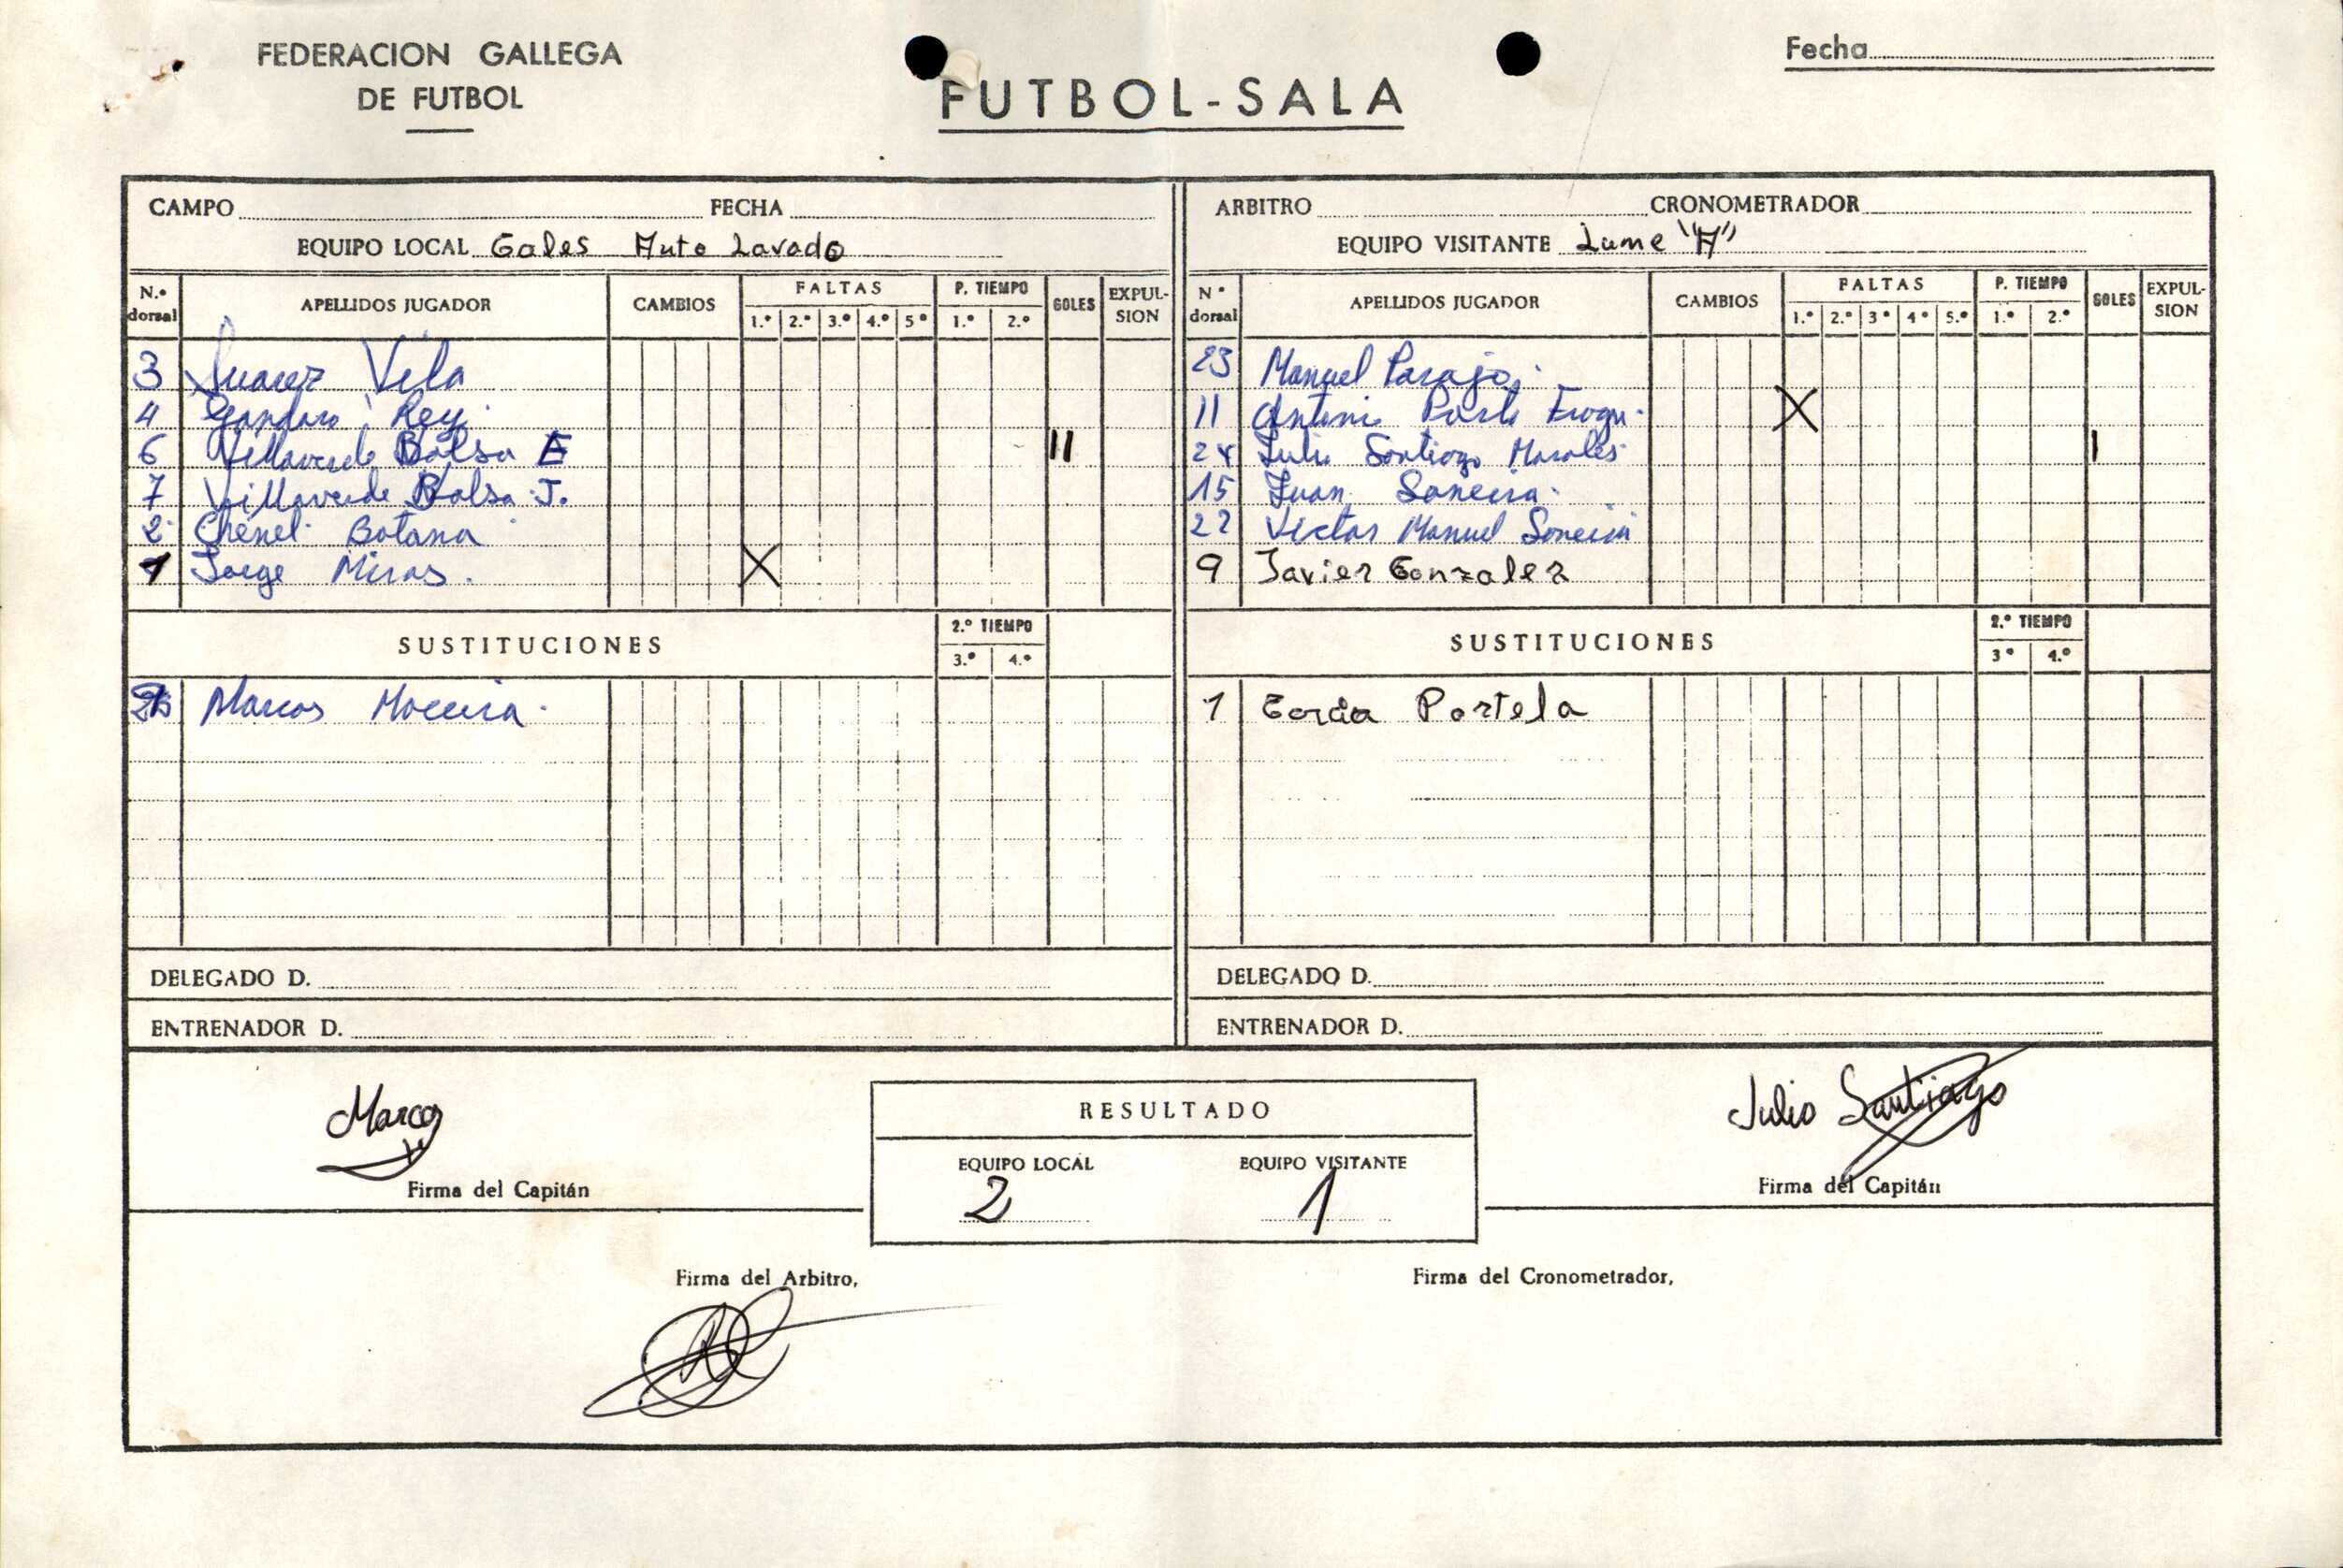 FEDERACION GALLEGA
DE FUTBOL
FUTBOL-SALA
Fecha
CAMPO FECHA
EQUIPO LOCAL Gales Auto Lavado
N.º dorsal APELLIDOS JUGADOR CAMBIOS FALTAS 1.º 2.º 3.º 4.º 5º P. TIEMPO 1.º 2.º GOLES EXPULSION
3 Suarez Vila
4 Gandara Rey
6 Villaverde Balsa E II
7 Villaverde Balsa J.
2 Chenel Botana
1 Jorge Miras. X
SUSTITUCIONES 2.º TIEMPO 3.º 4.º
Marcos Moreira
DELEGADO D.
ENTRENADOR D.
ARBITRO CRONOMETRADOR
EQUIPO VISITANTE Lume "A"
Nº dorsal APELLIDOS JUGADOR CAMBIOS FALTAS 1.º 2.º 3º 4º 5.º P. TIEMPO 1.º 2.º GOLES EXPULSION
23 Manuel Parajo
11 X
24 Julio Santiago Morales I
15 Juan Soneira
22 Victor Manuel Soneira
9 Javier Gonzalez
SUSTITUCIONES 2.º TIEMPO 3º 4.º
1 Garcia Portela
DELEGADO D.
ENTRENADOR D.
Marcos
Firma del Capitán
RESULTADO
EQUIPO LOCAL EQUIPO VISITANTE
2 1
Julio Santiago
Firma del Capitán
Firma del Arbitro,
Firma del Cronometrador,